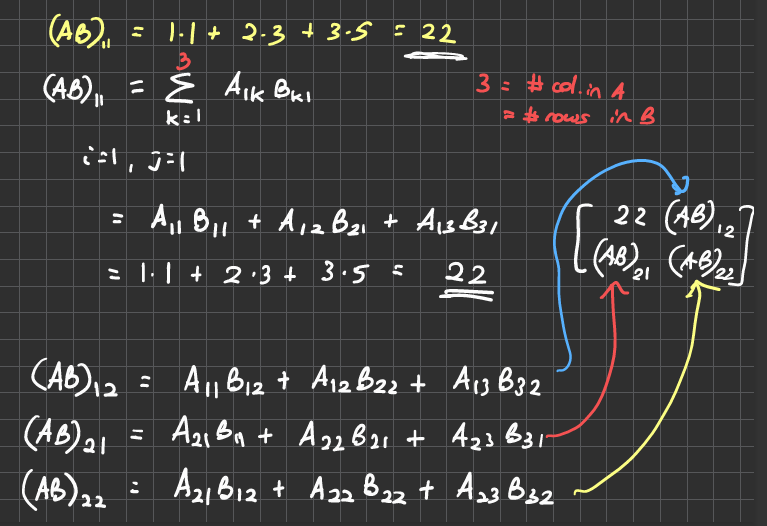 (AB)₁₁ = 1·1 + 2·3 + 3·5 = 22
(AB)₁₁ = ∑ₖ₌₁³ A₁ₖ Bₖ₁
3 = # col. in A
= # rows in B
i=1, j=1
= A₁₁ B₁₁ + A₁₂ B₂₁ + A₁₃ B₃₁
= 1·1 + 2·3 + 3·5 = 22
[ 22 (AB)₁₂
(AB)₂₁ (AB)₂₂ ]
(AB)₁₂ = A₁₁ B₁₂ + A₁₂ B₂₂ + A₁₃ B₃₂
(AB)₂₁ = A₂₁ B₁₁ + A₂₂ B₂₁ + A₂₃ B₃₁
(AB)₂₂ = A₂₁ B₁₂ + A₂₂ B₂₂ + A₂₃ B₃₂